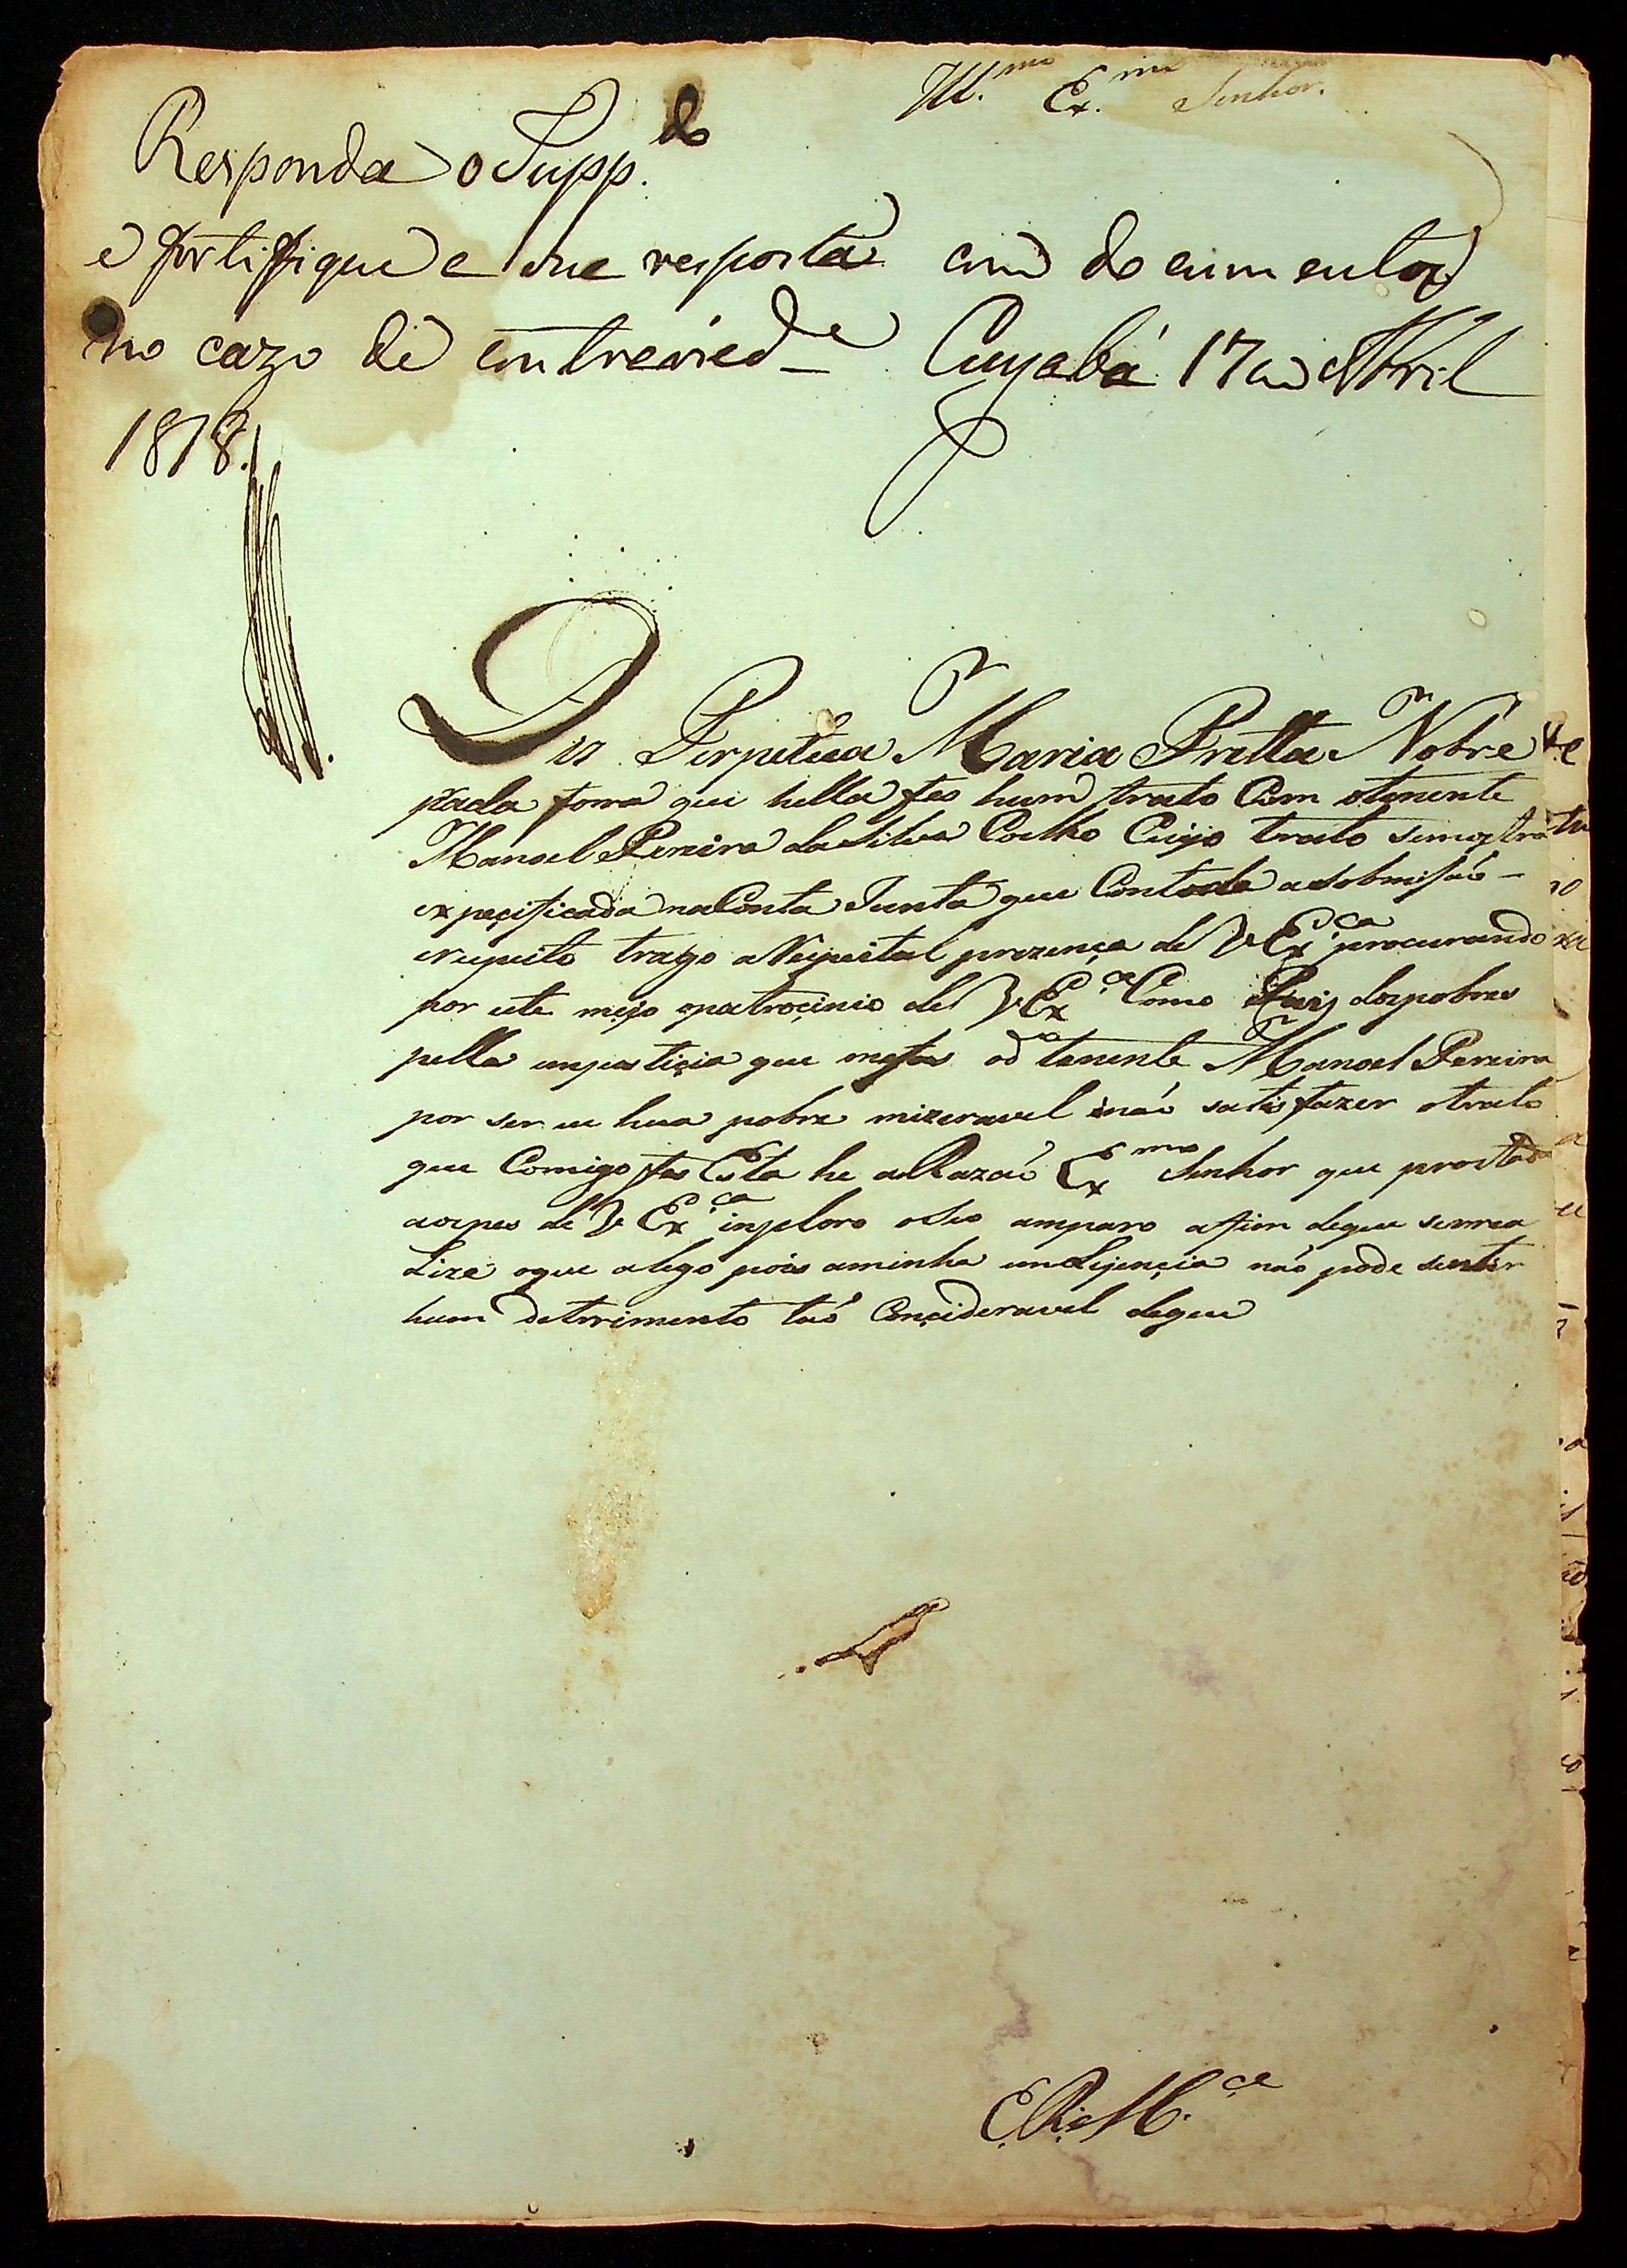 Ill.mo Ex.mo Senhor.
Responda o Supp.do
e fortifique a sua resposta com documentos
no cazo de contraried.e Cuyabá 17 de Abril
1818.
Dis Perpetua Maria Pretta Nobre
forra que hella fes hum trato Com otenente
Manoel Pereira daSilva Coelho Cujo trato semostra
expecificada naConta Junta que Comtoda asobmisaó
erespeito trago aRespeital prezença de V. Ex.ca procurando
por este mejo opatroçinio de V. Ex.ca Como Paij dospobres
pella injustiçia que mefas od.o tenente Manoel Pereira
por ser eu hua pobre mizeravel enaó satisfazer otrato
que Comigo fes Esta he aRazaó Ex.mo Senhor que prostada
aospes de V. Ex.ca inploro oSeo amparo afim deque semrea
Lize oque alego pois aminha endijençia naó pode sentir
hum detrimento taó Conçideravel deque
E. R. M.ce